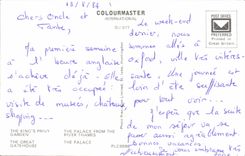 18/8/84
COLOURMASTER
INTERNATIONAL
POST OFFICE
PREFERRED
Printed in
Great Britain
Chers Oncle et
Tante,
Ma première semaine
à l'heure anglaise
s'achève déjà. Elle
a été très occupée :
visite de musées, châteaux
shopping...
Le week-end
dernier, nous
sommes allés à
Oxford, ville très intéres-
sante. Une journée est
loin d'être suffisante
pour tout voir...
J'espère que la suite
de mon séjour va se
passer aussi agréablement
Bonnes vacances
THE KING'S PRIVY
GARDEN
THE PALACE FROM THE
RIVER THAMES
THE GREAT
GATEHOUSE
THE PALACE